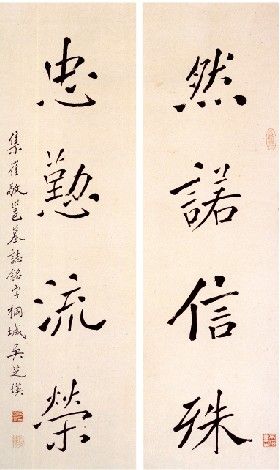 然諾信殊
忠懃流榮
集崔敬邕墓誌銘字桐城吳芝瑛